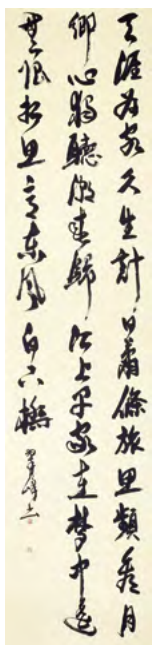 天涯為客久生計日蕭條旅思頻看月
鄉心獨聽潮春歸江上早家在夢中遙
無限相思意東風白下橋